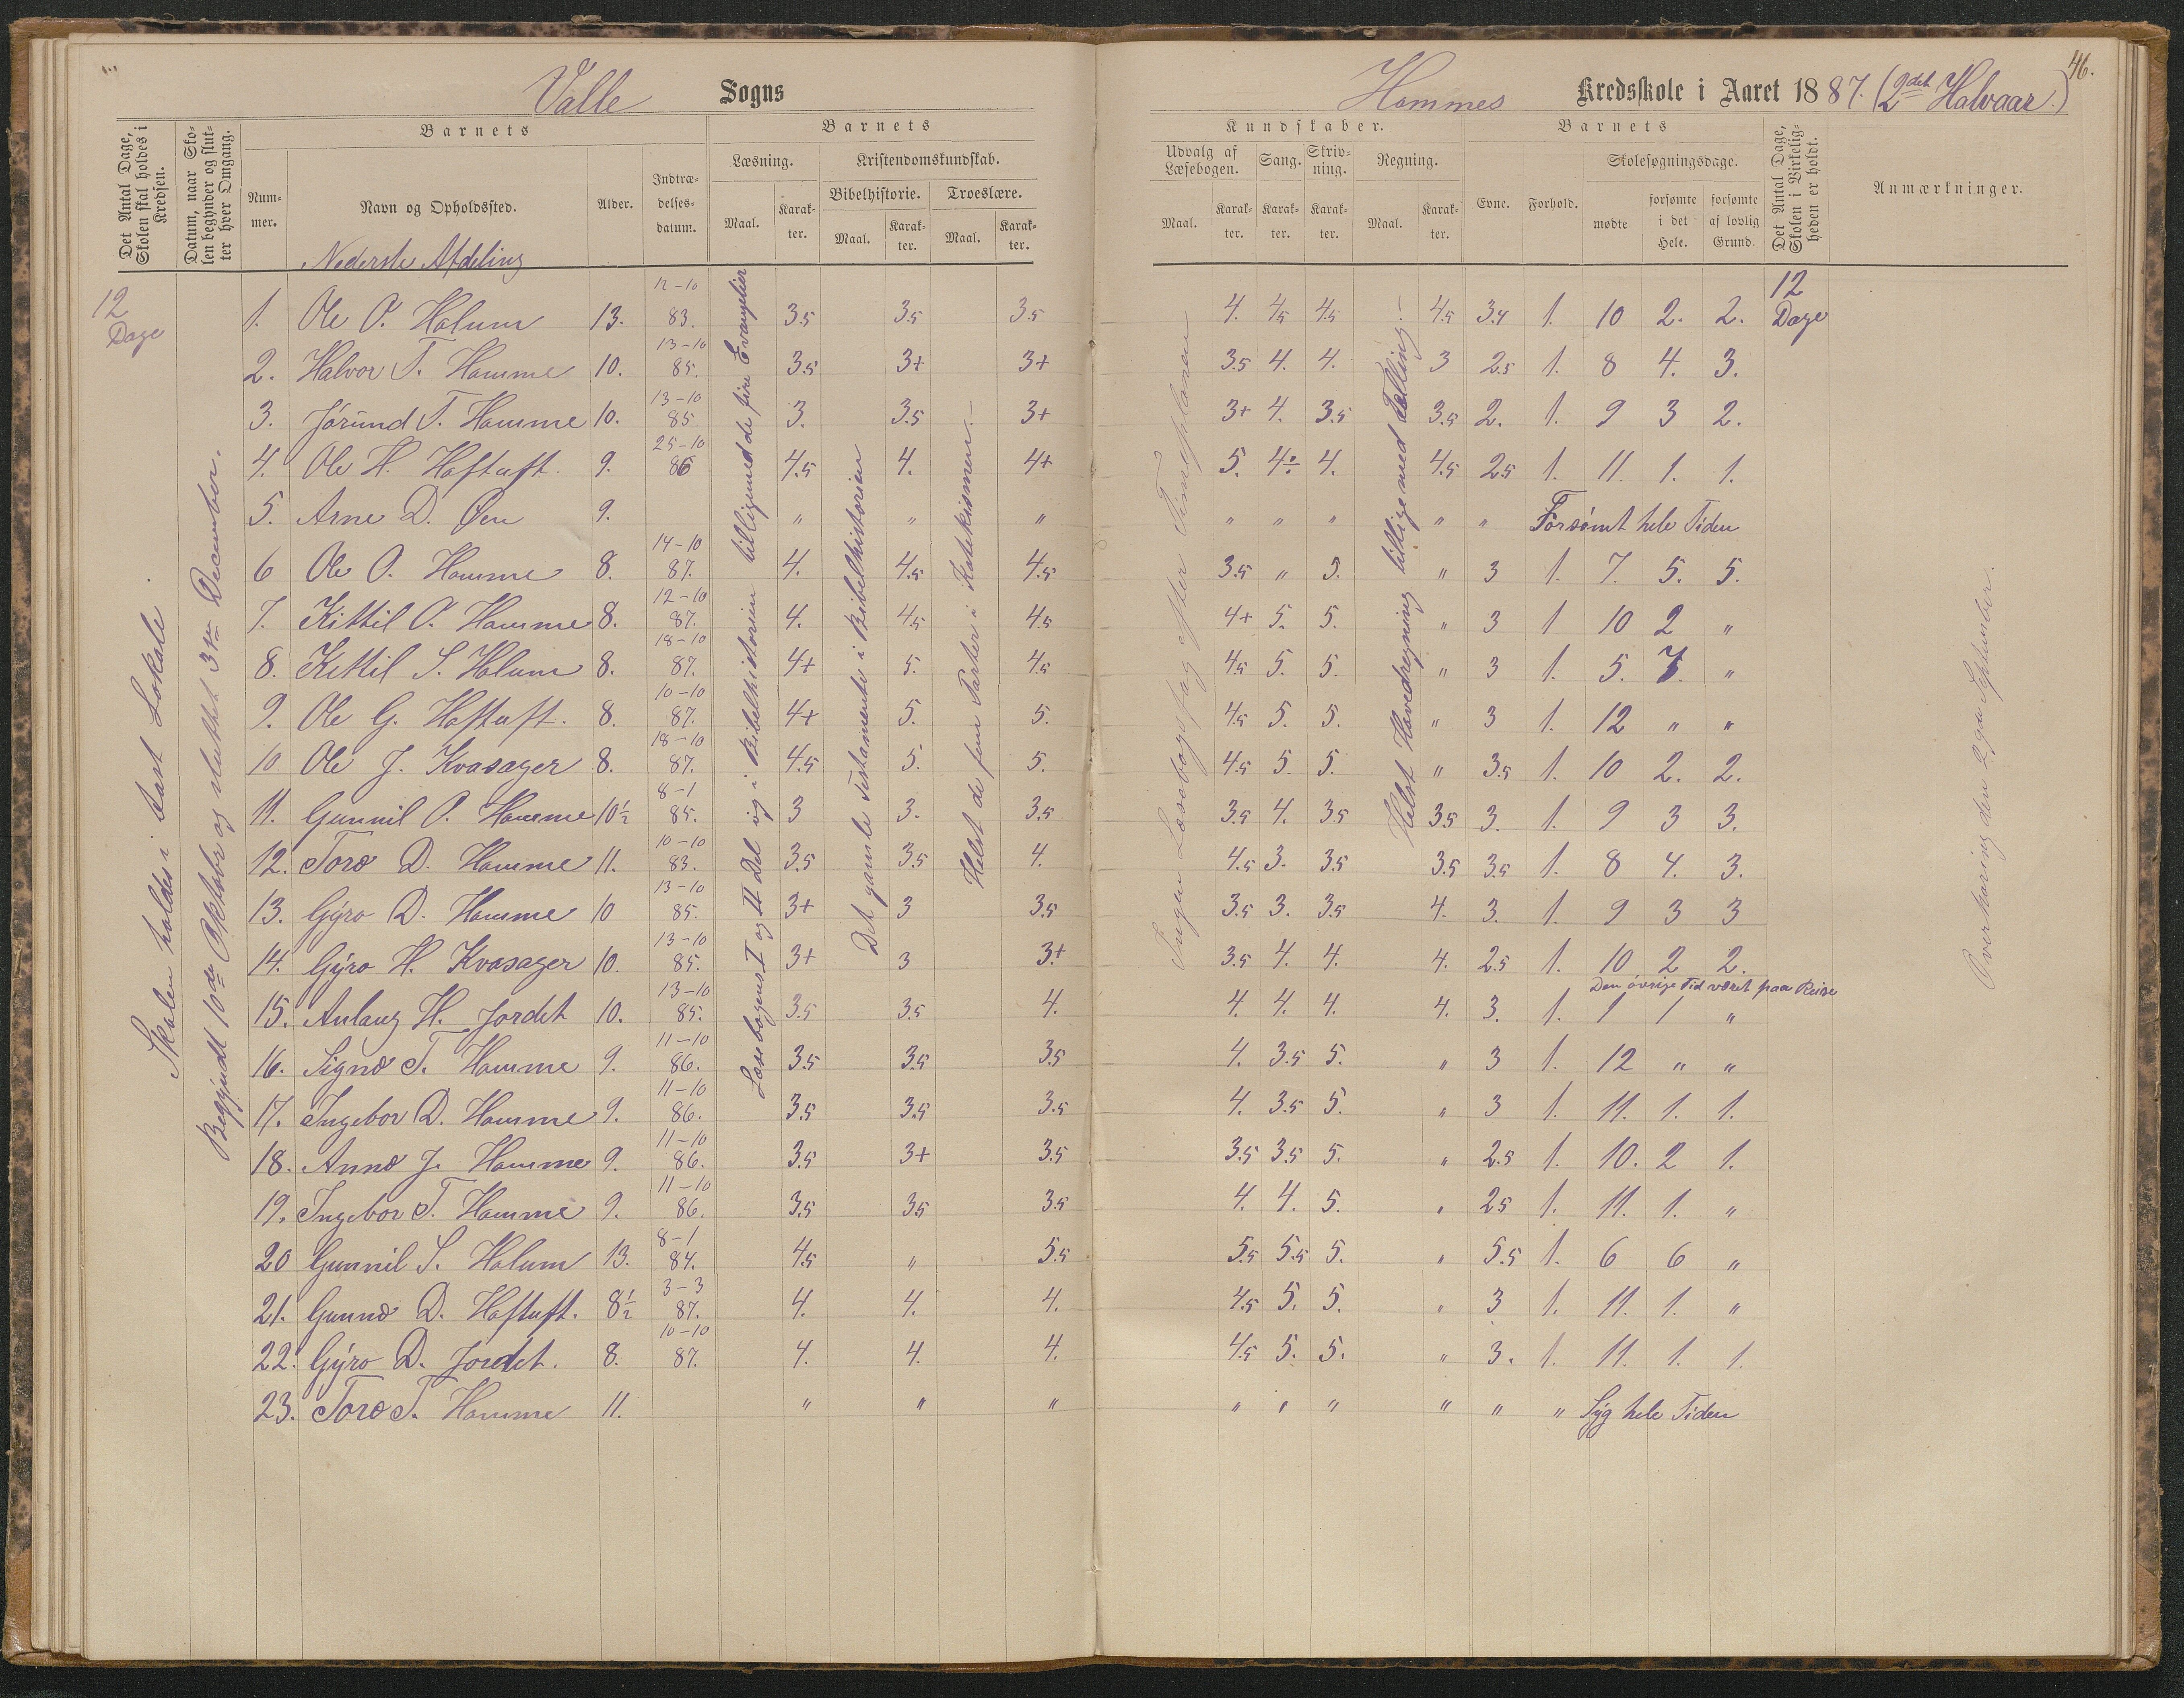 Valle Sogns
Hommes Kredsskole i Aaret 1887. (2det Halvaar.)
46.
Det Antal Dage, Skolen skal holdes i Kredsen.
Datum, naar Skolen begynder og slutter hver Omgang.
Barnets
Nummer.
Navn og Opholdssted.
Alder.
Indtrædelsesdatum.
Barnets
Læsning.
Kristendomskundskab.
Bibelhistorie.
Troeslære.
Maal.
Karakter.
Maal.
Karakter.
Maal.
Karakter.
Kundskaber.
Udvalg af Læsebogen.
Sang.
Skrivning.
Regning.
Maal.
Karakter.
Karakter.
Karakter.
Maal.
Karakter.
Barnets
Evne.
Forhold.
Skolesøgningsdage.
mødte
forsømte i det Hele.
forsømte af lovlig Grund.
Det Antal Dage, Skolen i Virkeligheden er holdt.
Anmærkninger.
Nederste Afdeling
12 Dage
Skolen holdes i fast Lokale.
Begyndt 10de Oktober og sluttet 3die December.
Læsebogens I og II Del og i Bibelhistorien tilligemed de fire Evangelier
Det gamle Testamente i Bibelhistorien
Helst de fem Parter i Katekismen.
Ingen Læsebogsfag efter Timeplanen
Helst Hovedregning tilligemed Tælling.
12 Dage
Overhøring den 29de September.
1. Ole O. Holum 13. 12-10 83. 3.5 3.5 3.5 4. 4.5 4.5 4.5 3.4 1. 10 2. 2.
2. Halvor T. Homme 10. 13-10 85. 3.5 3+ 3+ 3.5 4. 4. 3 2.5 1. 8 4. 3.
3. Jórund T. Homme 10. 13-10 85 3. 3.5 3+ 3+ 4. 3.5 3.5 2. 1. 9 3 2.
4. Ole H. Haftuft. 9. 25-10 86 4.5 4. 4+ 5. 4÷ 4. 4.5 2.5 1. 11. 1. 1.
5. Arne D. Øen 9. " " " " " " " " Forsømt hele Tiden
6 Ole O. Homme 8. 14-10 87. 4. 4.5 4.5 3.5 " 5. " 3 1. 7. 5. 5.
7. Kittil O. Homme 8. 12-10 87. 4. 4.5 4.5 4+ 5. 5. " 3 1 10 2 "
8. Kittil S. Holum 8. 18-10 87. 4+ 5. 4.5 4.5 5. 5. " 3 1. 5. 7. "
9. Ole G. Haftuft. 8. 10-10 87. 4+ 5. 5. 4.5 5. 5. " 3 1. 12 " "
10 Ole J. Kvasager 8. 18-10 87. 4.5 5. 5. 4.5 5. 5. " 3.5 1. 10 2. 2.
11. Gunnil O. Homme 10½ 8-1 85. 3 3. 3.5 3.5 4. 3.5 3.5 3. 1. 9 3 3.
12. Toro D. Homme 11. 10-10 83. 3.5 3.5 4. 4.5 3. 3.5 3.5 3.5 1. 8 4. 3.
13. Gýro D. Homme 10 13-10 85. 3+ 3 3.5 3.5 3. 3.5 4. 3. 1. 9 3 3
14. Gýro H. Kvasager 10. 13-10 85. 3+ 3 3+ 3.5 4. 4. 4. 2.5 1. 10 2 2.
Den øvrige Tid været paa Reise
15. Anlaug H. Jordet 10. 13-10 85. 3.5 3.5 4. 4. 4. 4. 4. 3. 1. 1 1 "
16. Signe T. Homme 9. 11-10 86. 3.5 3.5 3.5 4. 3.5 5. " 3 1. 12 " "
17. Ingebor D. Homme 9. 11-10 86. 3.5 3.5 3.5 4. 3.5 5. " 3 1. 11. 1. 1.
18. Anne J. Homme 9. 11-10 86. 3.5 3+ 3.5 3.5 3.5 5. " 2.5 1. 10. 2 1.
19. Ingebor T. Homme 9. 11-10 86. 3.5 3.5 3.5 4. 4. 5. " 2.5 1. 11. 1. "
20 Gunnil S. Holum 13. 8-1 84. 4.5 " 5.5 5.5 5.5 5. " 5.5 1. 6 6 "
21. Gunne D. Haftuft. 8½ 3-3 87. 4. 4. 4. 4.5 5. 5. " 3 1. 11. 1. "
22. Gýro D. Jordet. 8. 10-10 87. 4. 4. 4. 4.5 5. 5. " 3. 1. 11. 1. 1.
23. Toro T. Homme 11. " " " " " " " " " Syg hele Tiden